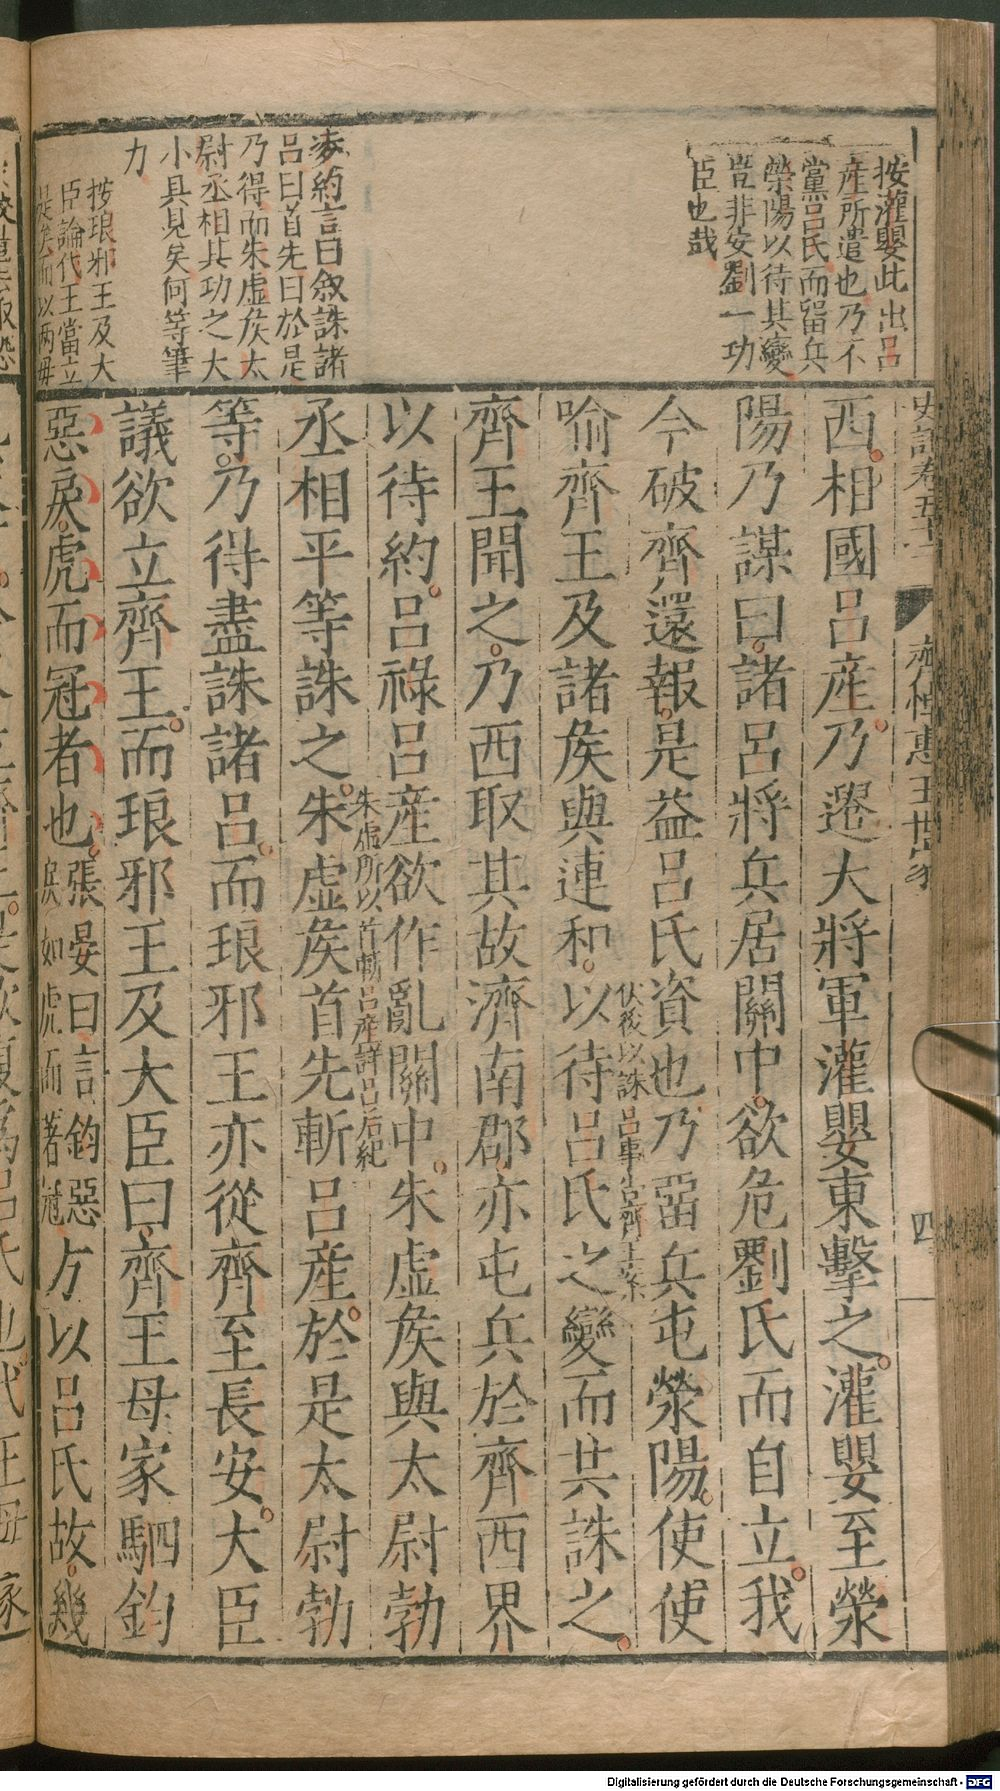 按灌嬰此出呂
産所遣也乃不
黨呂氏而留兵
滎陽以待其變
豈非安劉一功
臣也哉
凌約言曰敘誅諸
呂曰首先曰於是
乃得而朱虛矦太
尉丞相其功之大
小具見矣何等筆
力
按琅邪王及大
臣論代王當立
以兩母
史記卷五十二
齊悼惠王世家
四
西相國呂産乃遣大將軍灌嬰東擊之灌嬰至滎
陽乃謀曰諸呂將兵居關中欲危劉氏而自立我
今破齊還報是益呂氏資也乃畱兵屯滎陽使使
喻齊王及諸矦與連和以待呂氏之變而共誅之
伏後以誅呂事告齊王案
齊王聞之乃西取其故濟南郡亦屯兵於齊西界
以待約呂祿呂産欲作亂關中朱虛矦與太尉勃
朱虛所以首斬呂産詳呂后紀
丞相平等誅之朱虛矦首先斬呂産於是太尉勃
等乃得盡誅諸呂而琅邪王亦從齊至長安大臣
議欲立齊王而琅邪王及大臣曰齊王母家駟鈞
惡戾虎而冠者也張晏曰言鈞惡戾如虎而著冠方以呂氏故幾
Digitalisierung gefördert durch die Deutsche Forschungsgemeinschaft - DFG